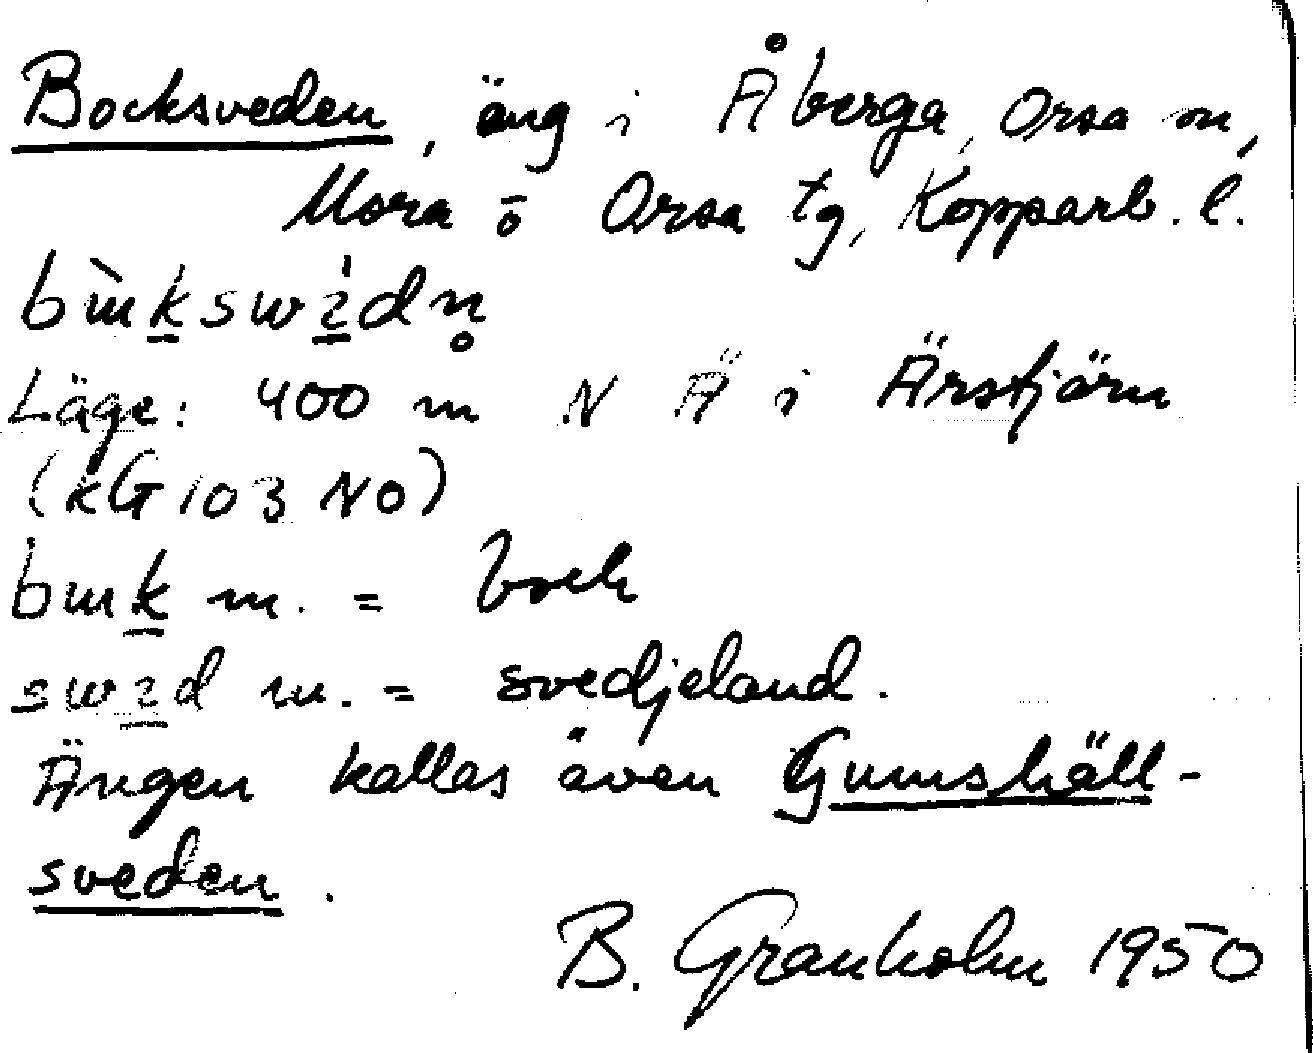 Bocksveden, äng i Åberga, Orsa sn,
Mora o Orsa tg, Kopparb. l.
Läge: 400 m N Ä i Ärstjärn
(kG 103 NO)
m. = bock
m. = svedjeland.
Ängen kallas även Gumshäll-
sveden.
B. Granholm 1950